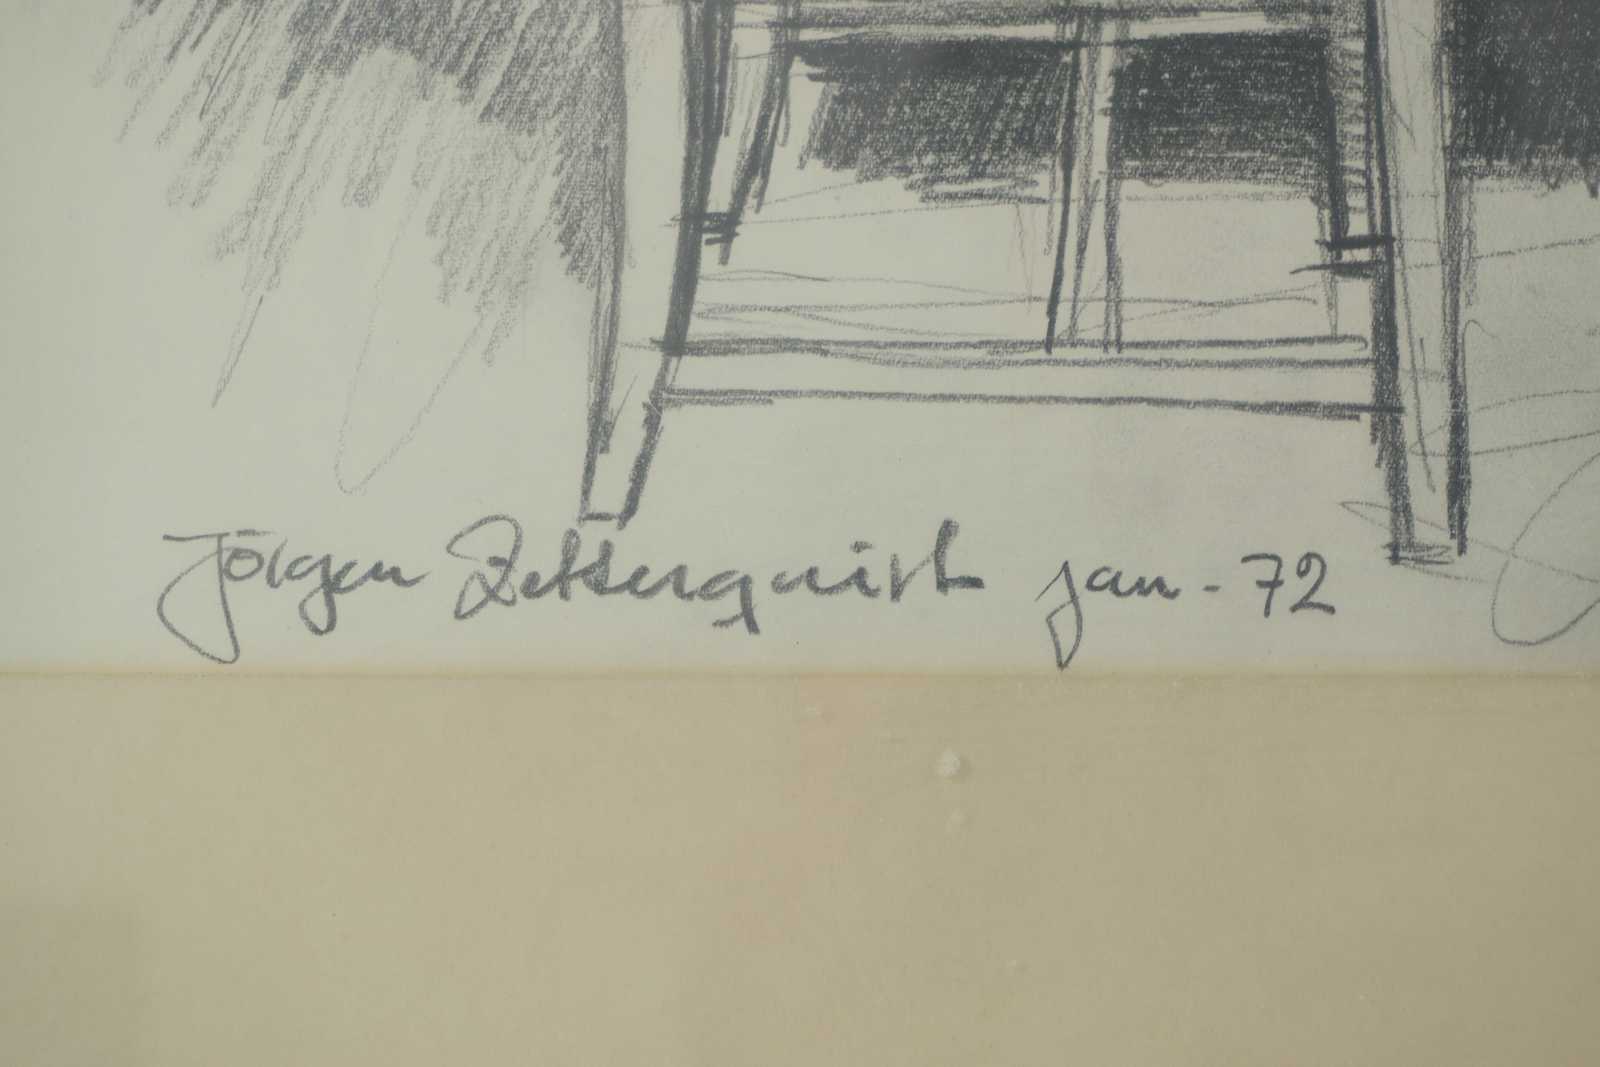 Jörgen Zetterquist jan - 72